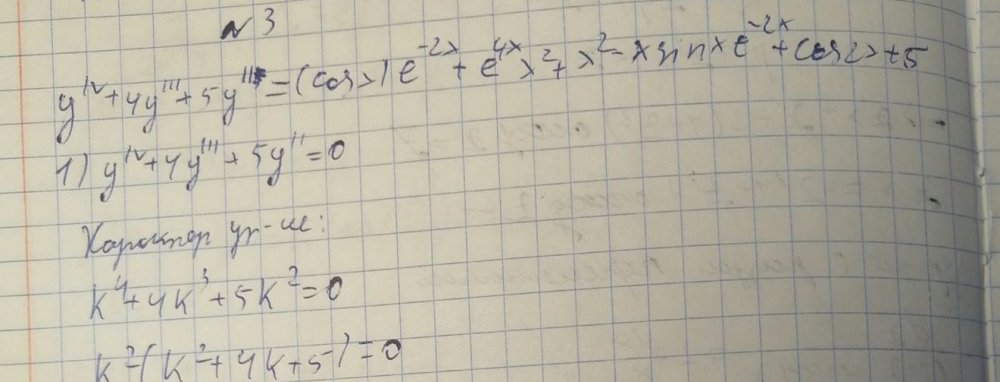 №3
y^{IV}+4y'''+5y''=(cosx)e^{-2x}+e^{4x}x^2+x^2-xsinxe^{-2x}+cos2x+5
1) y^{IV}+4y'''+5y''=0
Характер ур-ие:
k^4+4k^3+5k^2=0
k^2(k^2+4k+5)=0